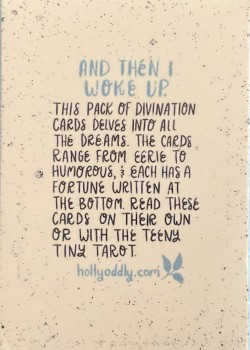 AND THEN I
WOKE UP.
THIS PACK OF DIVINATION
CARDS DELVES INTO ALL
THE DREAMS. THE CARDS
RANGE FROM EERIE TO
HUMOROUS, & EACH HAS A
FORTUNE WRITTEN AT
THE BOTTOM. READ THESE
CARDS ON THEIR OWN
OR WITH THE TEENY
TINY TAROT.
hollyoddly.com